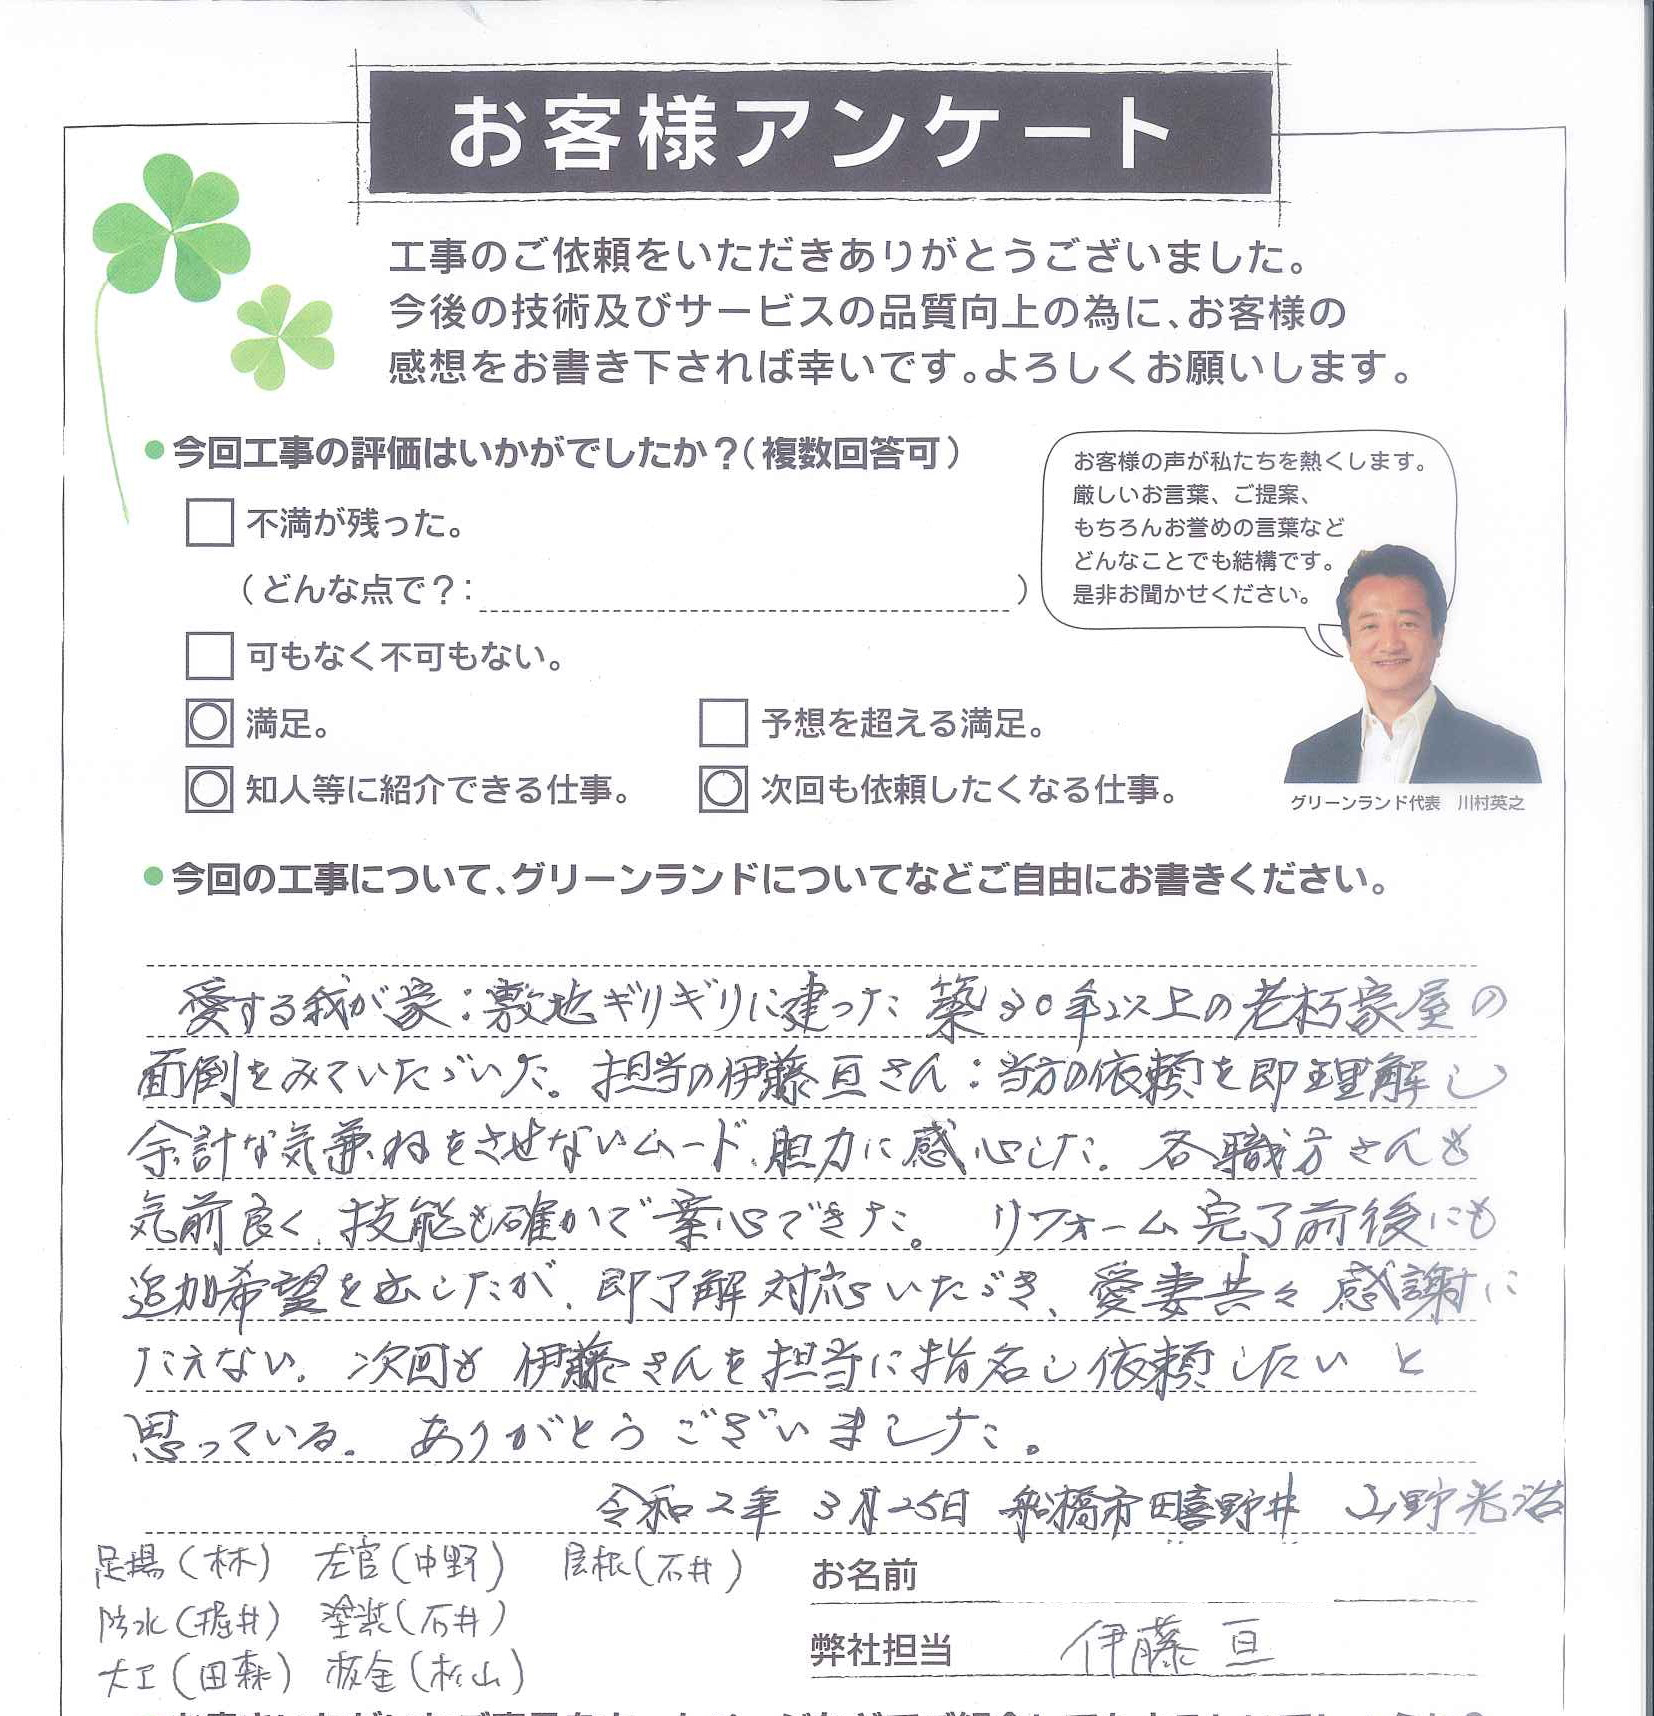 お客様アンケート
工事のご依頼をいただきありがとうございました。
今後の技術及びサービスの品質向上の為に、お客様の
感想をお書き下されば幸いです。よろしくお願いします。
●今回工事の評価はいかがでしたか？(複数回答可)
不満が残った。
(どんな点で？: )
可もなく不可もない。
○ 満足。 予想を超える満足。
○ 知人等に紹介できる仕事。 ○ 次回も依頼したくなる仕事。
お客様の声が私たちを熱くします。
厳しいお言葉、ご提案、
もちろんお誉めの言葉など
どんなことでも結構です。
是非お聞かせください。
グリーンランド代表 川村英之
●今回の工事について、グリーンランドについてなどご自由にお書きください。
愛する我が家：敷地ギリギリに建った築30年以上の老朽家屋の
面倒をみていただいた。担当の伊藤亘さん：当方の依頼を即理解し
余計な気兼ねをさせないムード、胆力に感心した。各職方さんも
気前良く、技能も確かで安心できた。 リフォーム完了前後にも
追加希望を出したが、即了解対応いただき、愛妻共々感謝に
たえない。次回も伊藤さんを担当に指名し依頼したいと
思っている。ありがとうございました。
令和2年 3月25日 船橋市田喜野井 山野光治
足場(林) 左官(中野) 屋根(石井)
防水(堀井) 塗装(石井)
大工(田森) 板金(杉山)
お名前
弊社担当 伊藤 亘